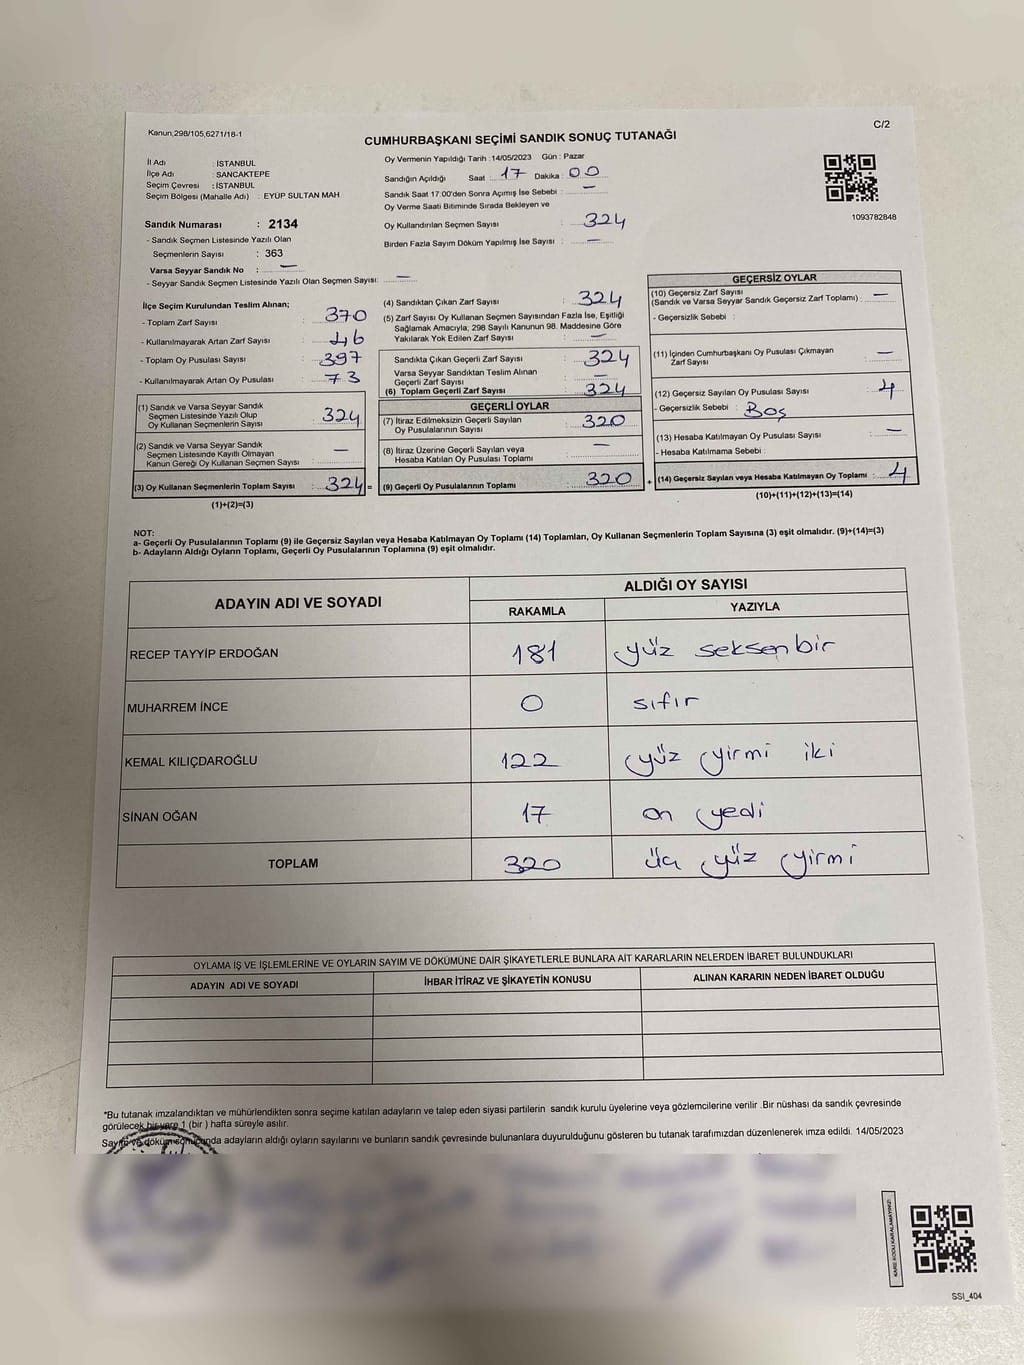 Kanun,298/105,6271/18-1
C/2
CUMHURBAŞKANI SEÇİMİ SANDIK SONUÇ TUTANAĞI
İl Adı : İSTANBUL
İlçe Adı : SANCAKTEPE
Seçim Çevresi : İSTANBUL
Seçim Bölgesi (Mahalle Adı) : EYÜP SULTAN MAH
Sandık Numarası : 2134
- Sandık Seçmen Listesinde Yazılı Olan
Seçmenlerin Sayısı : 363
Varsa Seyyar Sandık No : —
- Seyyar Sandık Seçmen Listesinde Yazılı Olan Seçmen Sayısı: —
Oy Vermenin Yapıldığı Tarih :14/05/2023 Gün : Pazar
Sandığın Açıldığı Saat : 17 Dakika : 00
Sandık Saat 17:00'den Sonra Açımış İse Sebebi : —
Oy Verme Saati Bitiminde Sırada Bekleyen ve
Oy Kullandırılan Seçmen Sayısı : 324
Birden Fazla Sayım Döküm Yapılmış İse Sayısı : —
1093782848
İlçe Seçim Kurulundan Teslim Alınan;
- Toplam Zarf Sayısı : 370
- Kullanılmayarak Artan Zarf Sayısı : 46
- Toplam Oy Pusulası Sayısı : 397
- Kullanılmayarak Artan Oy Pusulası : 73
(1) Sandık ve Varsa Seyyar Sandık
Seçmen Listesinde Yazılı Olup
Oy Kullanan Seçmenlerin Sayısı : 324
(2) Sandık ve Varsa Seyyar Sandık
Seçmen Listesinde Kayıtlı Olmayan
Kanun Gereği Oy Kullanan Seçmen Sayısı : —
(3) Oy Kullanan Seçmenlerin Toplam Sayısı : 324 =
(1)+(2)=(3)
(4) Sandıktan Çıkan Zarf Sayısı : 324
(5) Zarf Sayısı Oy Kullanan Seçmen Sayısından Fazla İse, Eşitliği
Sağlamak Amacıyla, 298 Sayılı Kanunun 98. Maddesine Göre
Yakılarak Yok Edilen Zarf Sayısı : —
Sandıkta Çıkan Geçerli Zarf Sayısı : 324
Varsa Seyyar Sandıktan Teslim Alınan
Geçerli Zarf Sayısı : —
(6) Toplam Geçerli Zarf Sayısı : 324
GEÇERLİ OYLAR
(7) İtiraz Edilmeksizin Geçerli Sayılan
Oy Pusulalarının Sayısı : 320
(8) İtiraz Üzerine Geçerli Sayılan veya
Hesaba Katılan Oy Pusulası Toplamı : —
(9) Geçerli Oy Pusulalarının Toplamı : 320 +
GEÇERSİZ OYLAR
(10) Geçersiz Zarf Sayısı
(Sandık ve Varsa Seyyar Sandık Geçersiz Zarf Toplamı) : —
- Geçersizlik Sebebi :
(11) İçinden Cumhurbaşkanı Oy Pusulası Çıkmayan
Zarf Sayısı : —
(12) Geçersiz Sayılan Oy Pusulası Sayısı : 4
- Geçersizlik Sebebi : Boş
(13) Hesaba Katılmayan Oy Pusulası Sayısı : —
- Hesaba Katılmama Sebebi :
(14) Geçersiz Sayılan veya Hesaba Katılmayan Oy Toplamı : 4
(10)+(11)+(12)+(13)=(14)
NOT:
a- Geçerli Oy Pusulalarının Toplamı (9) ile Geçersiz Sayılan veya Hesaba Katılmayan Oy Toplamı (14) Toplamları, Oy Kullanan Seçmenlerin Toplam Sayısına (3) eşit olmalıdır. (9)+(14)=(3)
b- Adayların Aldığı Oyların Toplamı, Geçerli Oy Pusulalarının Toplamına (9) eşit olmalıdır.
ADAYIN ADI VE SOYADI ALDIĞI OY SAYISI
RAKAMLA YAZIYLA
RECEP TAYYİP ERDOĞAN 181 yüz seksen bir
MUHARREM İNCE 0 sıfır
KEMAL KILIÇDAROĞLU 122 yüz yirmi iki
SİNAN OĞAN 17 on yedi
TOPLAM 320 üç yüz yirmi
OYLAMA İŞ VE İŞLEMLERİNE VE OYLARIN SAYIM VE DÖKÜMÜNE DAİR ŞİKAYETLERLE BUNLARA AİT KARARLARIN NELERDEN İBARET BULUNDUKLARI
ADAYIN ADI VE SOYADI İHBAR İTİRAZ VE ŞİKAYETİN KONUSU ALINAN KARARIN NEDEN İBARET OLDUĞU
*Bu tutanak imzalandıktan ve mühürlendikten sonra seçime katılan adayların ve talep eden siyasi partilerin sandık kurulu üyelerine veya gözlemcilerine verilir .Bir nüshası da sandık çevresinde
görülecek bir yere 1 (bir ) hafta süreyle asılır.
Sayım ve döküm sonucunda adayların aldığı oyların sayılarını ve bunların sandık çevresinde bulunanlara duyurulduğunu gösteren bu tutanak tarafımızdan düzenlenerek imza edildi. 14/05/2023
KARE KODU KARALAMAYINIZ!
SSI_404